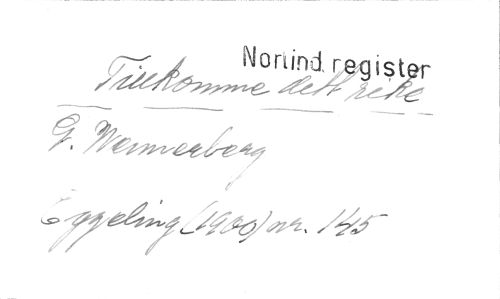 Nortind. register
Tillkomme ditt rike
G. Wennerberg
Eggeling (1900) nr. 145